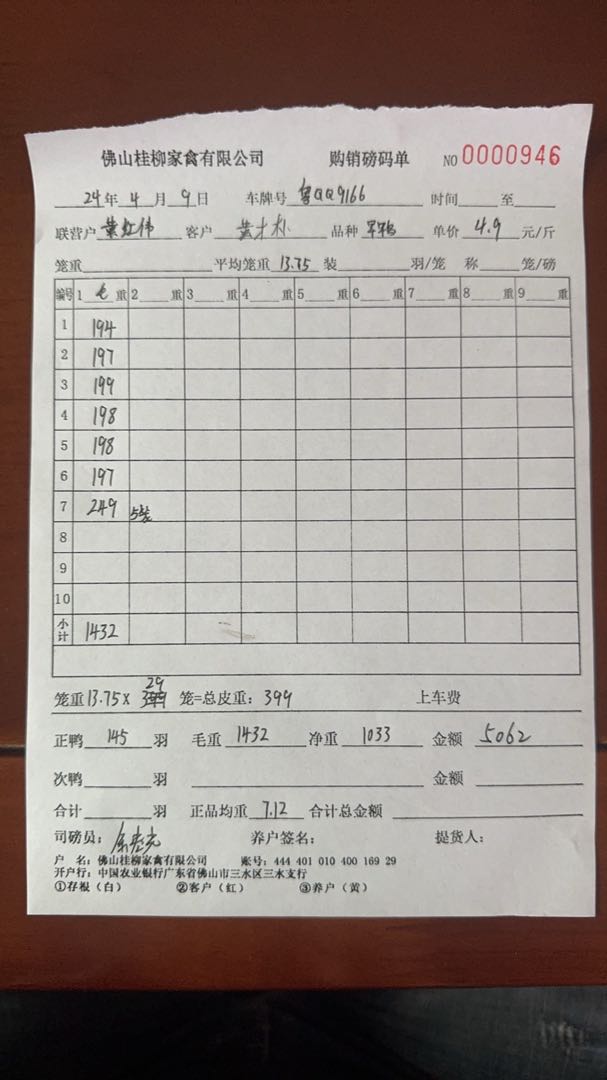 佛山桂柳家禽有限公司 购销磅码单 NO 0000946
24年 4月 9日 车牌号 粤QQ9166 时间 至
联营户 客户 品种 单价 4.9 元/斤
笼重 平均笼重 13.75 装 羽/笼 称 笼/磅
编号 1 毛 重 2 重 3 重 4 重 5 重 6 重 7 重 8 重 9 重
1 194
2 197
3 199
4 198
5 198
6 197
7 249 5笼
8
9
10
小计 1432
29
笼重13.75X 笼=总皮重：399 上车费
正鸭 145 羽 毛重 1432 净重 1033 金额 5062
次鸭 羽 金额
合计 羽 正品均重 7.12 合计总金额
司磅员： 养户签名： 提货人：
户 名：佛山桂柳家禽有限公司 账号：444 401 010 400 169 29
开户行：中国农业银行广东省佛山市三水区三水支行
①存根（白） ②客户（红） ③养户（黄）